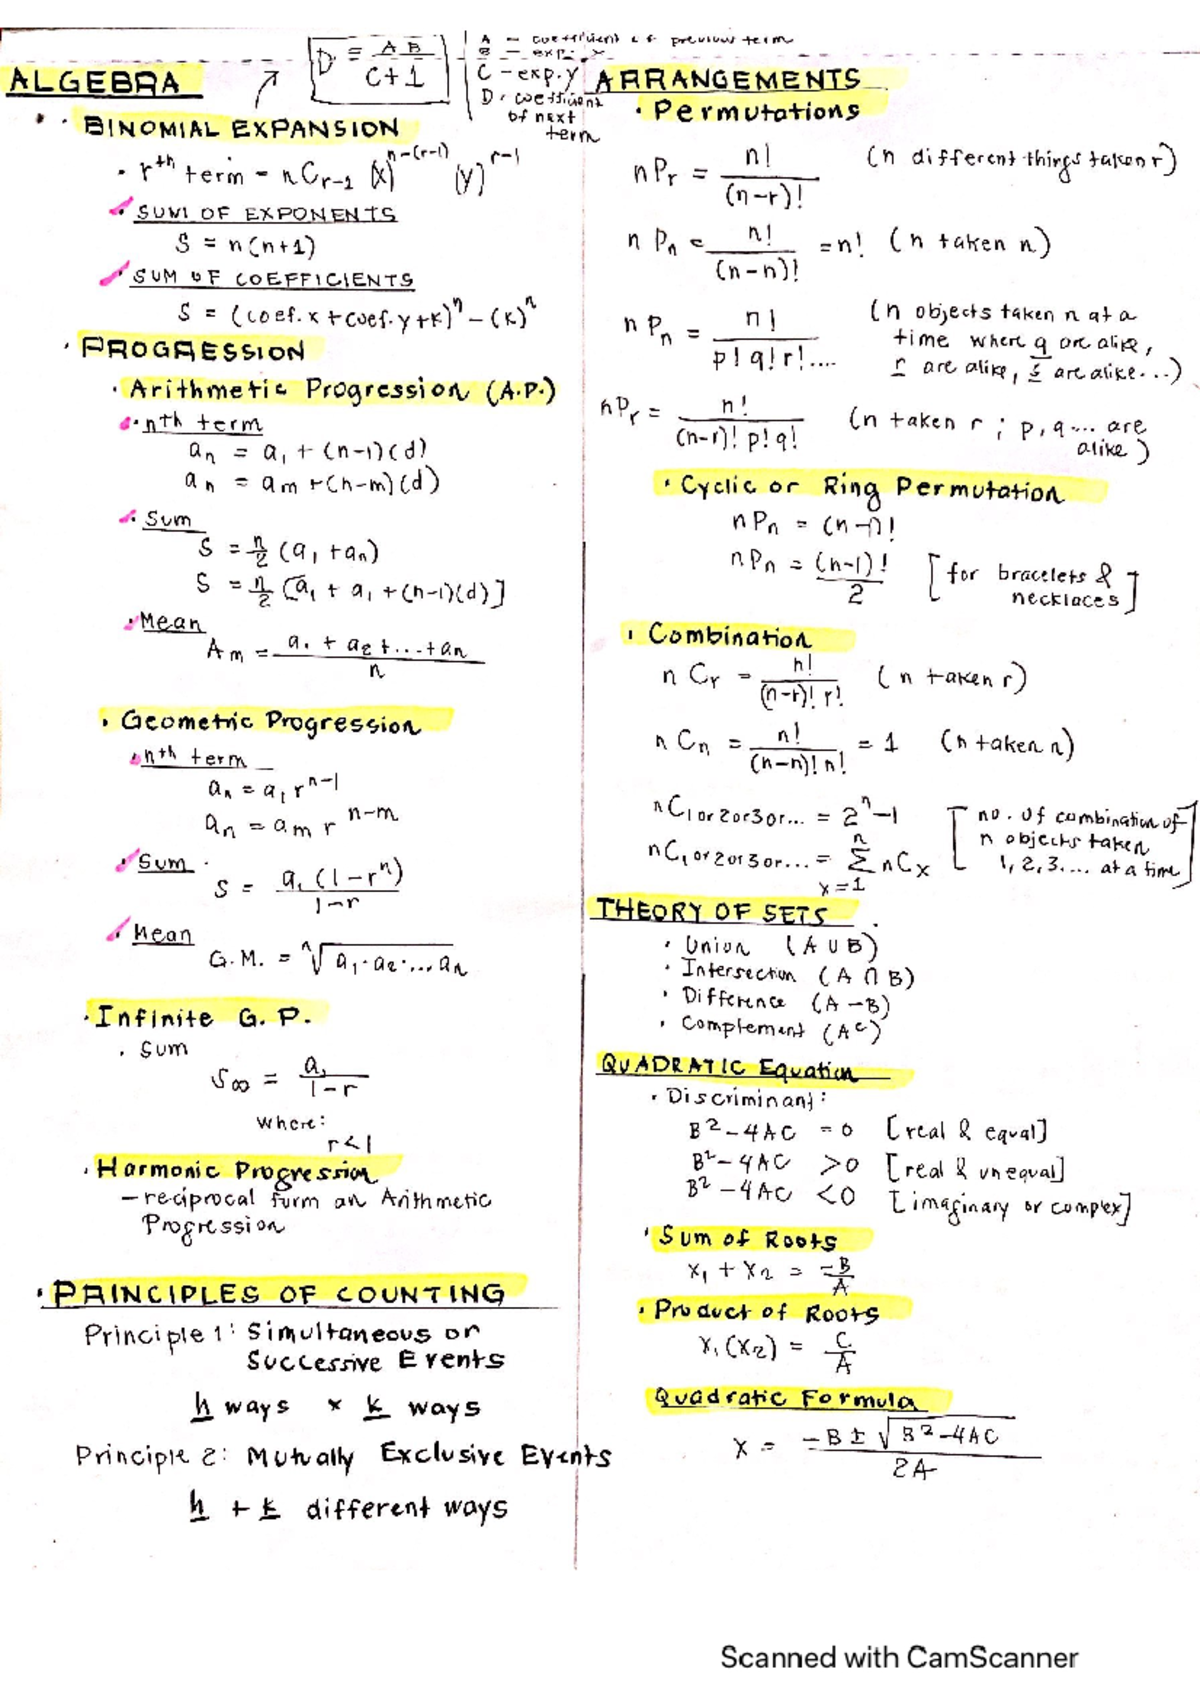 D = AB / C+1
A – coefficient of previous term
B – exp. x
C – exp. y
D · coefficient of next term
ALGEBRA
· BINOMIAL EXPANSION
· rth term = nCr-1 (x)^n-(r-1) (y)^r-1
SUM OF EXPONENTS
S = n(n+1)
SUM OF COEFFICIENTS
S = (coef. x + coef. y + k)^n – (k)^n
· PROGRESSION
· Arithmetic Progression (A.P.)
· nth term
an = a1 + (n-1)(d)
an = am + (n-m)(d)
· Sum
S = n/2 (a1 + an)
S = n/2 [a1 + a1 + (n-1)(d)]
· Mean
Am = a1 + a2 + ... + an / n
· Geometric Progression
nth term
an = a1 r^n-1
an = am r^n-m
Sum
S = a1 (1 – r^n) / 1-r
Mean
G.M. = n√a1·a2·...an
· Infinite G.P.
· Sum
S∞ = a1 / 1-r
where:
r<1
· Harmonic Progression
– reciprocal form an Arithmetic
Progression
· PRINCIPLES OF COUNTING
Principle 1: Simultaneous or
Successive Events
h ways × k ways
Principle 2: Mutually Exclusive Events
h + k different ways
ARRANGEMENTS
· Permutations
nPr = n! / (n-r)! (n different things taken r)
nPn = n! / (n-n)! = n! (n taken n)
nPn = n! / p! q! r! .... (n objects taken n at a
time where q are alike,
r are alike, s are alike...)
nPr = n! / (n-r)! p! q! (n taken r ; p, q ... are
alike)
· Cyclic or Ring Permutation
nPn = (n-1)!
nPn = (n-1)! / 2 [for bracelets &
necklaces]
· Combination
nCr = n! / (n-r)! r! (n taken r)
nCn = n! / (n-n)! n! = 1 (n taken n)
nC1 or 2 or 3 or... = 2^n – 1 [no. of combination of
n objects taken
1, 2, 3.... at a time]
nC1 or 2 or 3 or... = n Σ x=1 nCx
THEORY OF SETS
· Union (A ∪ B)
· Intersection (A ∩ B)
· Difference (A – B)
· Complement (A^c)
QUADRATIC Equation
· Discriminant:
B² – 4AC = 0 [real & equal]
B² – 4AC > 0 [real & unequal]
B² – 4AC < 0 [imaginary or complex]
· Sum of Roots
x1 + x2 = -B/A
· Product of Roots
x1(x2) = C/A
Quadratic Formula
x = -B ± √B² – 4AC / 2A
Scanned with CamScanner